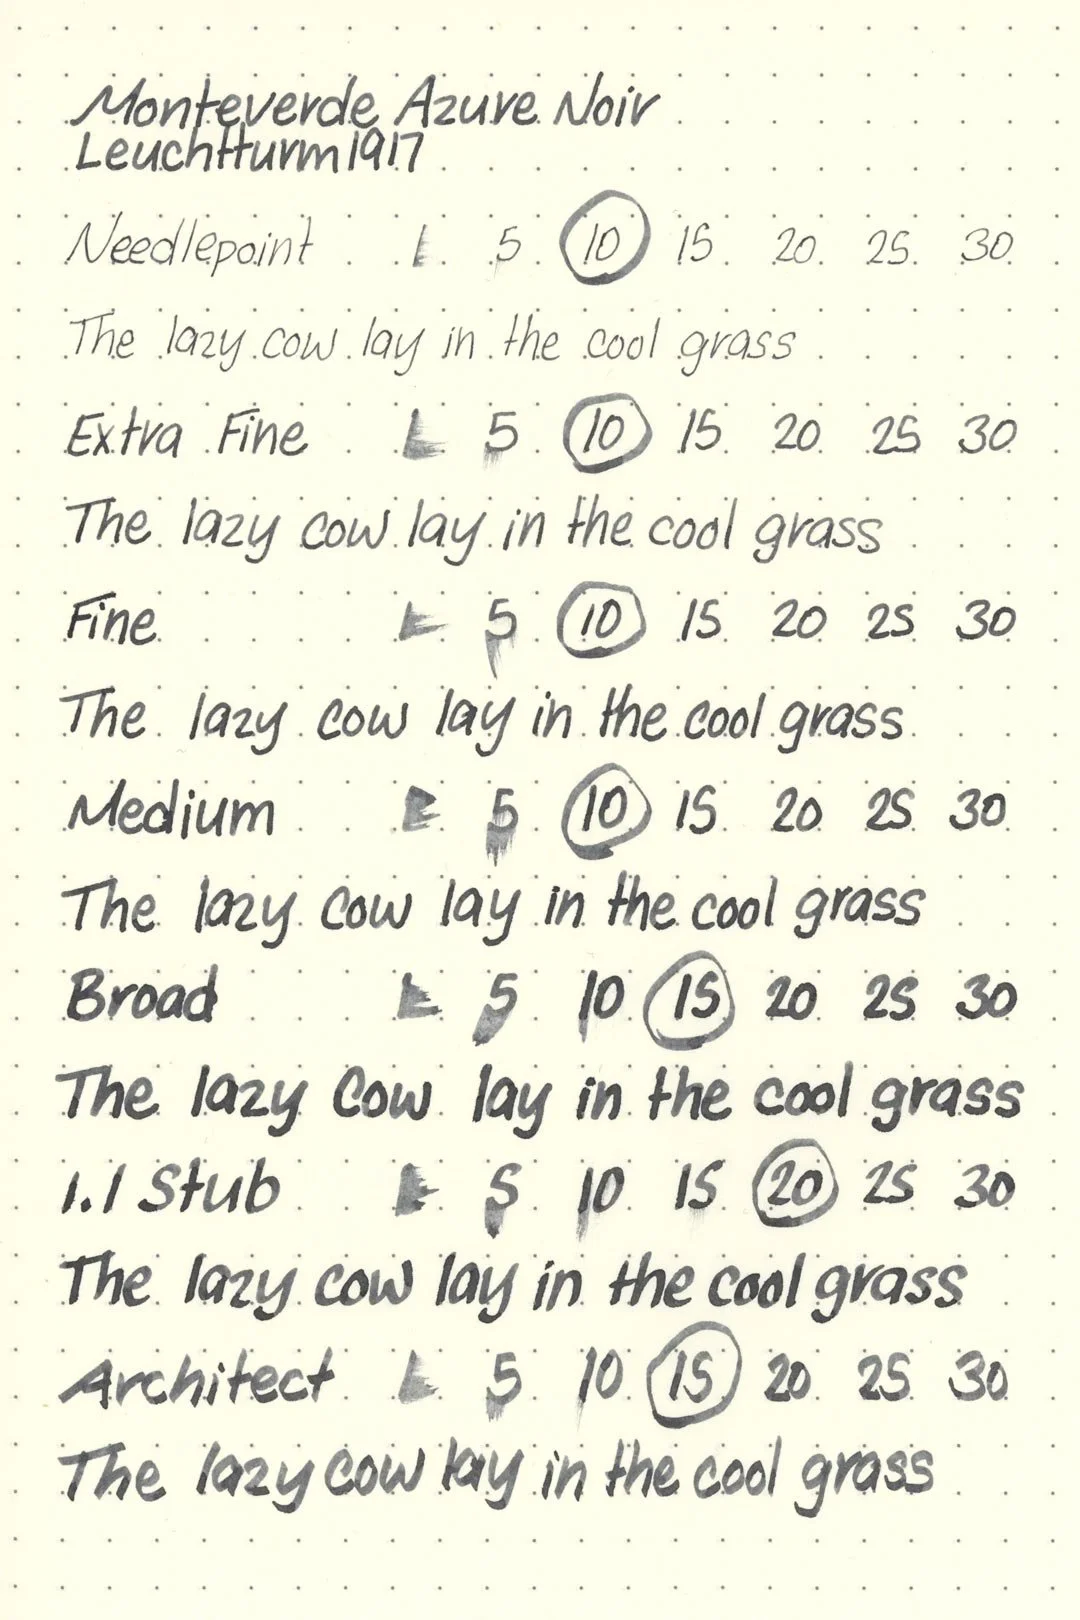 Monteverde Azure Noir
Leuchtturm1917
Needlepoint 1 5 10 15 20 25 30
The lazy cow lay in the cool grass
Extra Fine 1 5 10 15 20 25 30
The lazy cow lay in the cool grass
Fine 1 5 10 15 20 25 30
The lazy cow lay in the cool grass
Medium 1 5 10 15 20 25 30
The lazy cow lay in the cool grass
Broad 1 5 10 15 20 25 30
The lazy cow lay in the cool grass
1.1 Stub 1 5 10 15 20 25 30
The lazy cow lay in the cool grass
Architect 1 5 10 15 20 25 30
The lazy cow lay in the cool grass